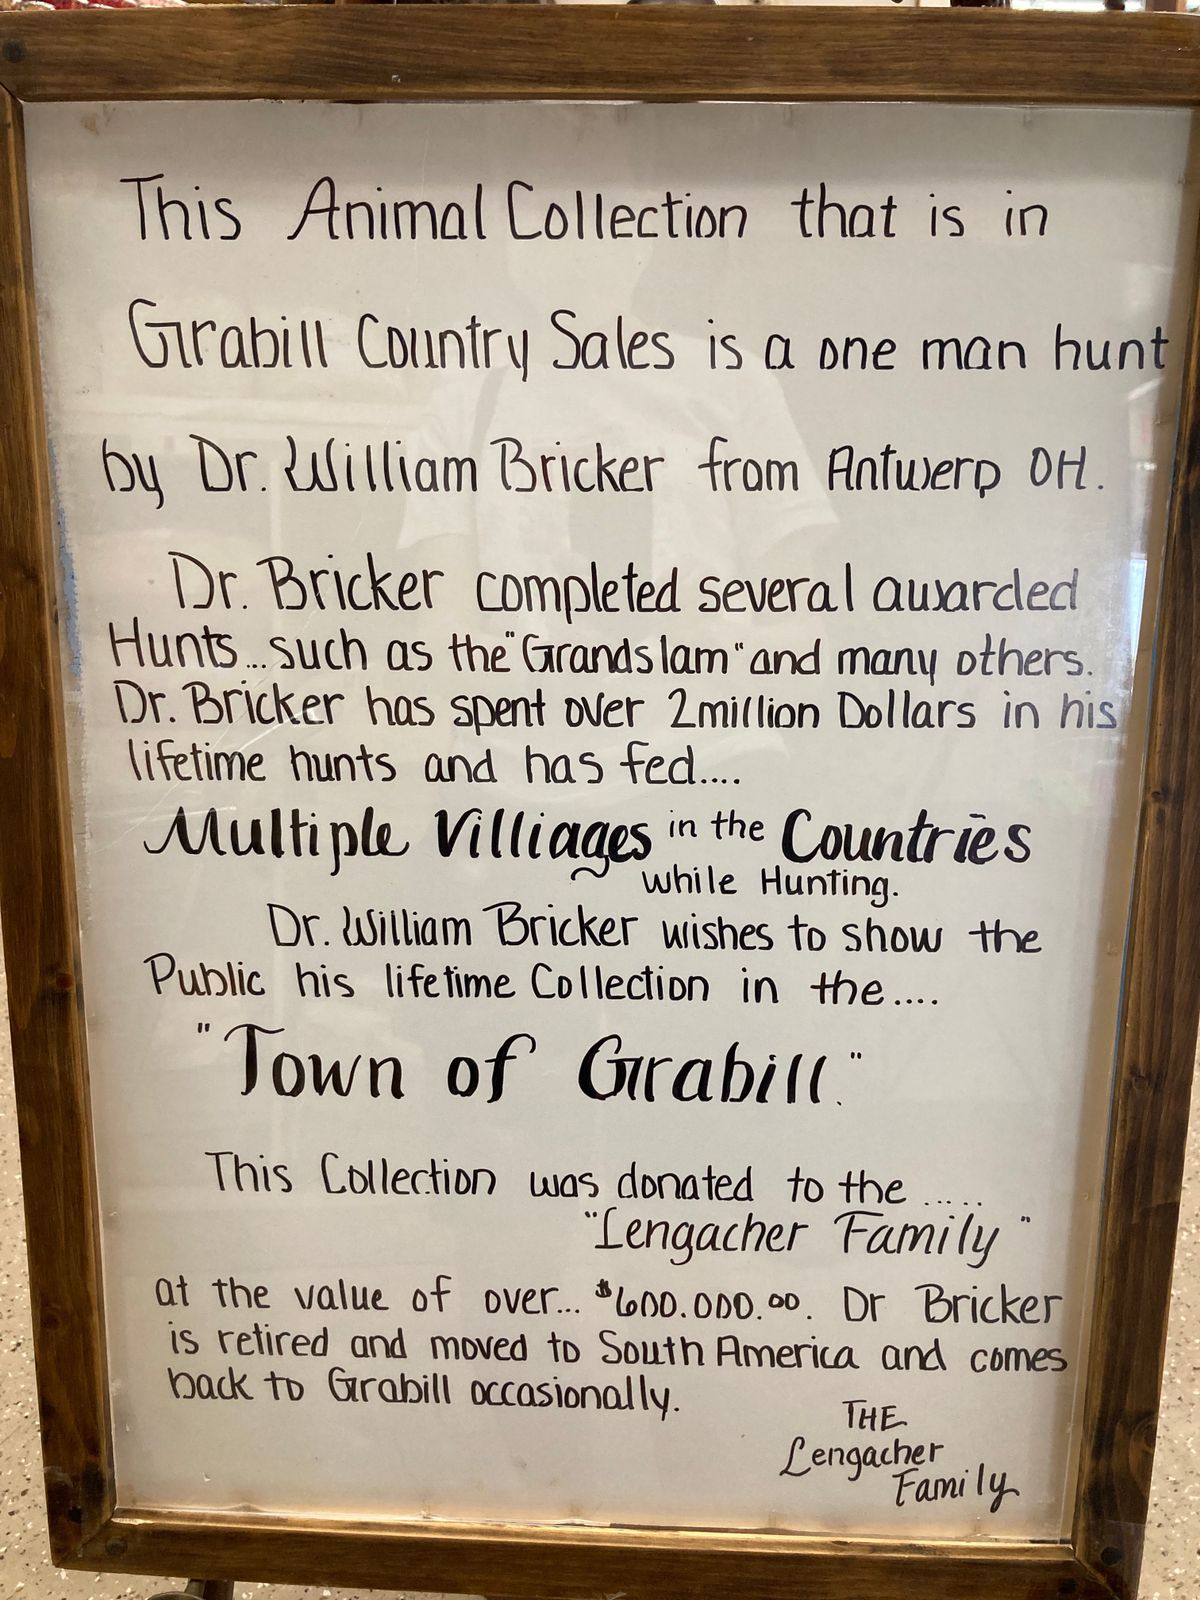 This Animal Collection that is in
Grabill Country Sales is a one man hunt
by Dr. William Bricker from Antwerp OH.
Dr. Bricker completed several awarded
Hunts... such as the "Grandslam" and many others.
Dr. Bricker has spent over 2million Dollars in his
lifetime hunts and has fed....
Multiple Villiages in the Countries
while Hunting.
Dr. William Bricker wishes to show the
Public his lifetime Collection in the....
"Town of Grabill."
This Collection was donated to the .....
"Lengacher Family"
at the value of over... $600.000.00. Dr Bricker
is retired and moved to South America and comes
back to Grabill occasionally.
THE
Lengacher
Family